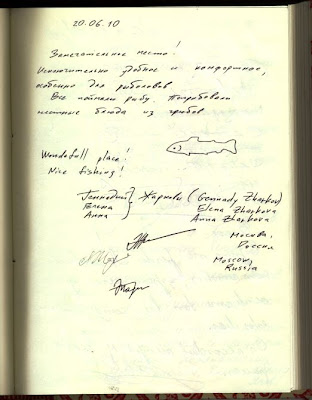 20.06.10
Замечательное место!
Исключительно удобное и комфортное,
особенно для рыболовов
Все поймали рыбу. Попробовали
местные блюда из грибов
Wonderfull place!
Nice fishing!
Геннадий } Жарковы (Gennady Zharkov)
Елена Elena Zharkova
Анна Anna Zharkova
Москва,
Россия
Moscow,
Russia